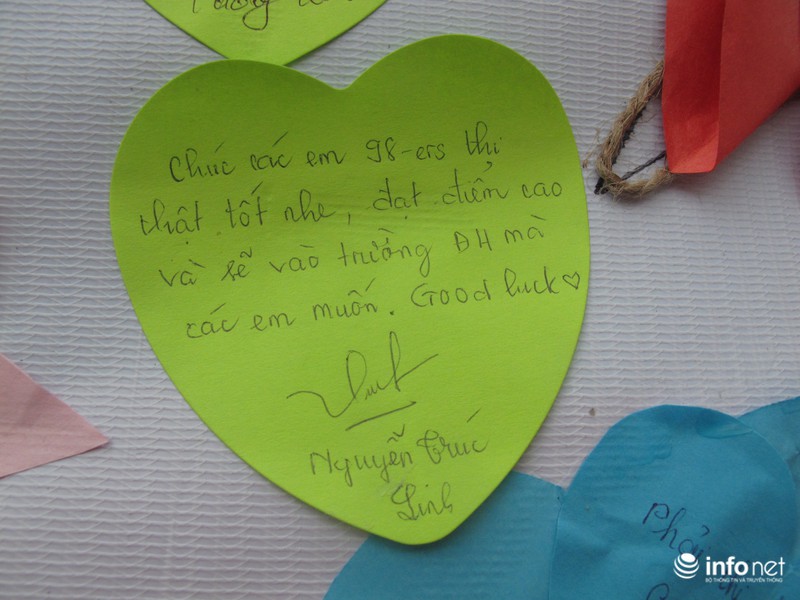 Chúc các em 98-ers thi
thật tốt nhe, đạt điểm cao
và sẽ vào trường ĐH mà
các em muốn. Good luck ♡
Nguyễn Trúc
Linh
Phải
infonet
BỘ THÔNG TIN VÀ TRUYỀN THÔNG